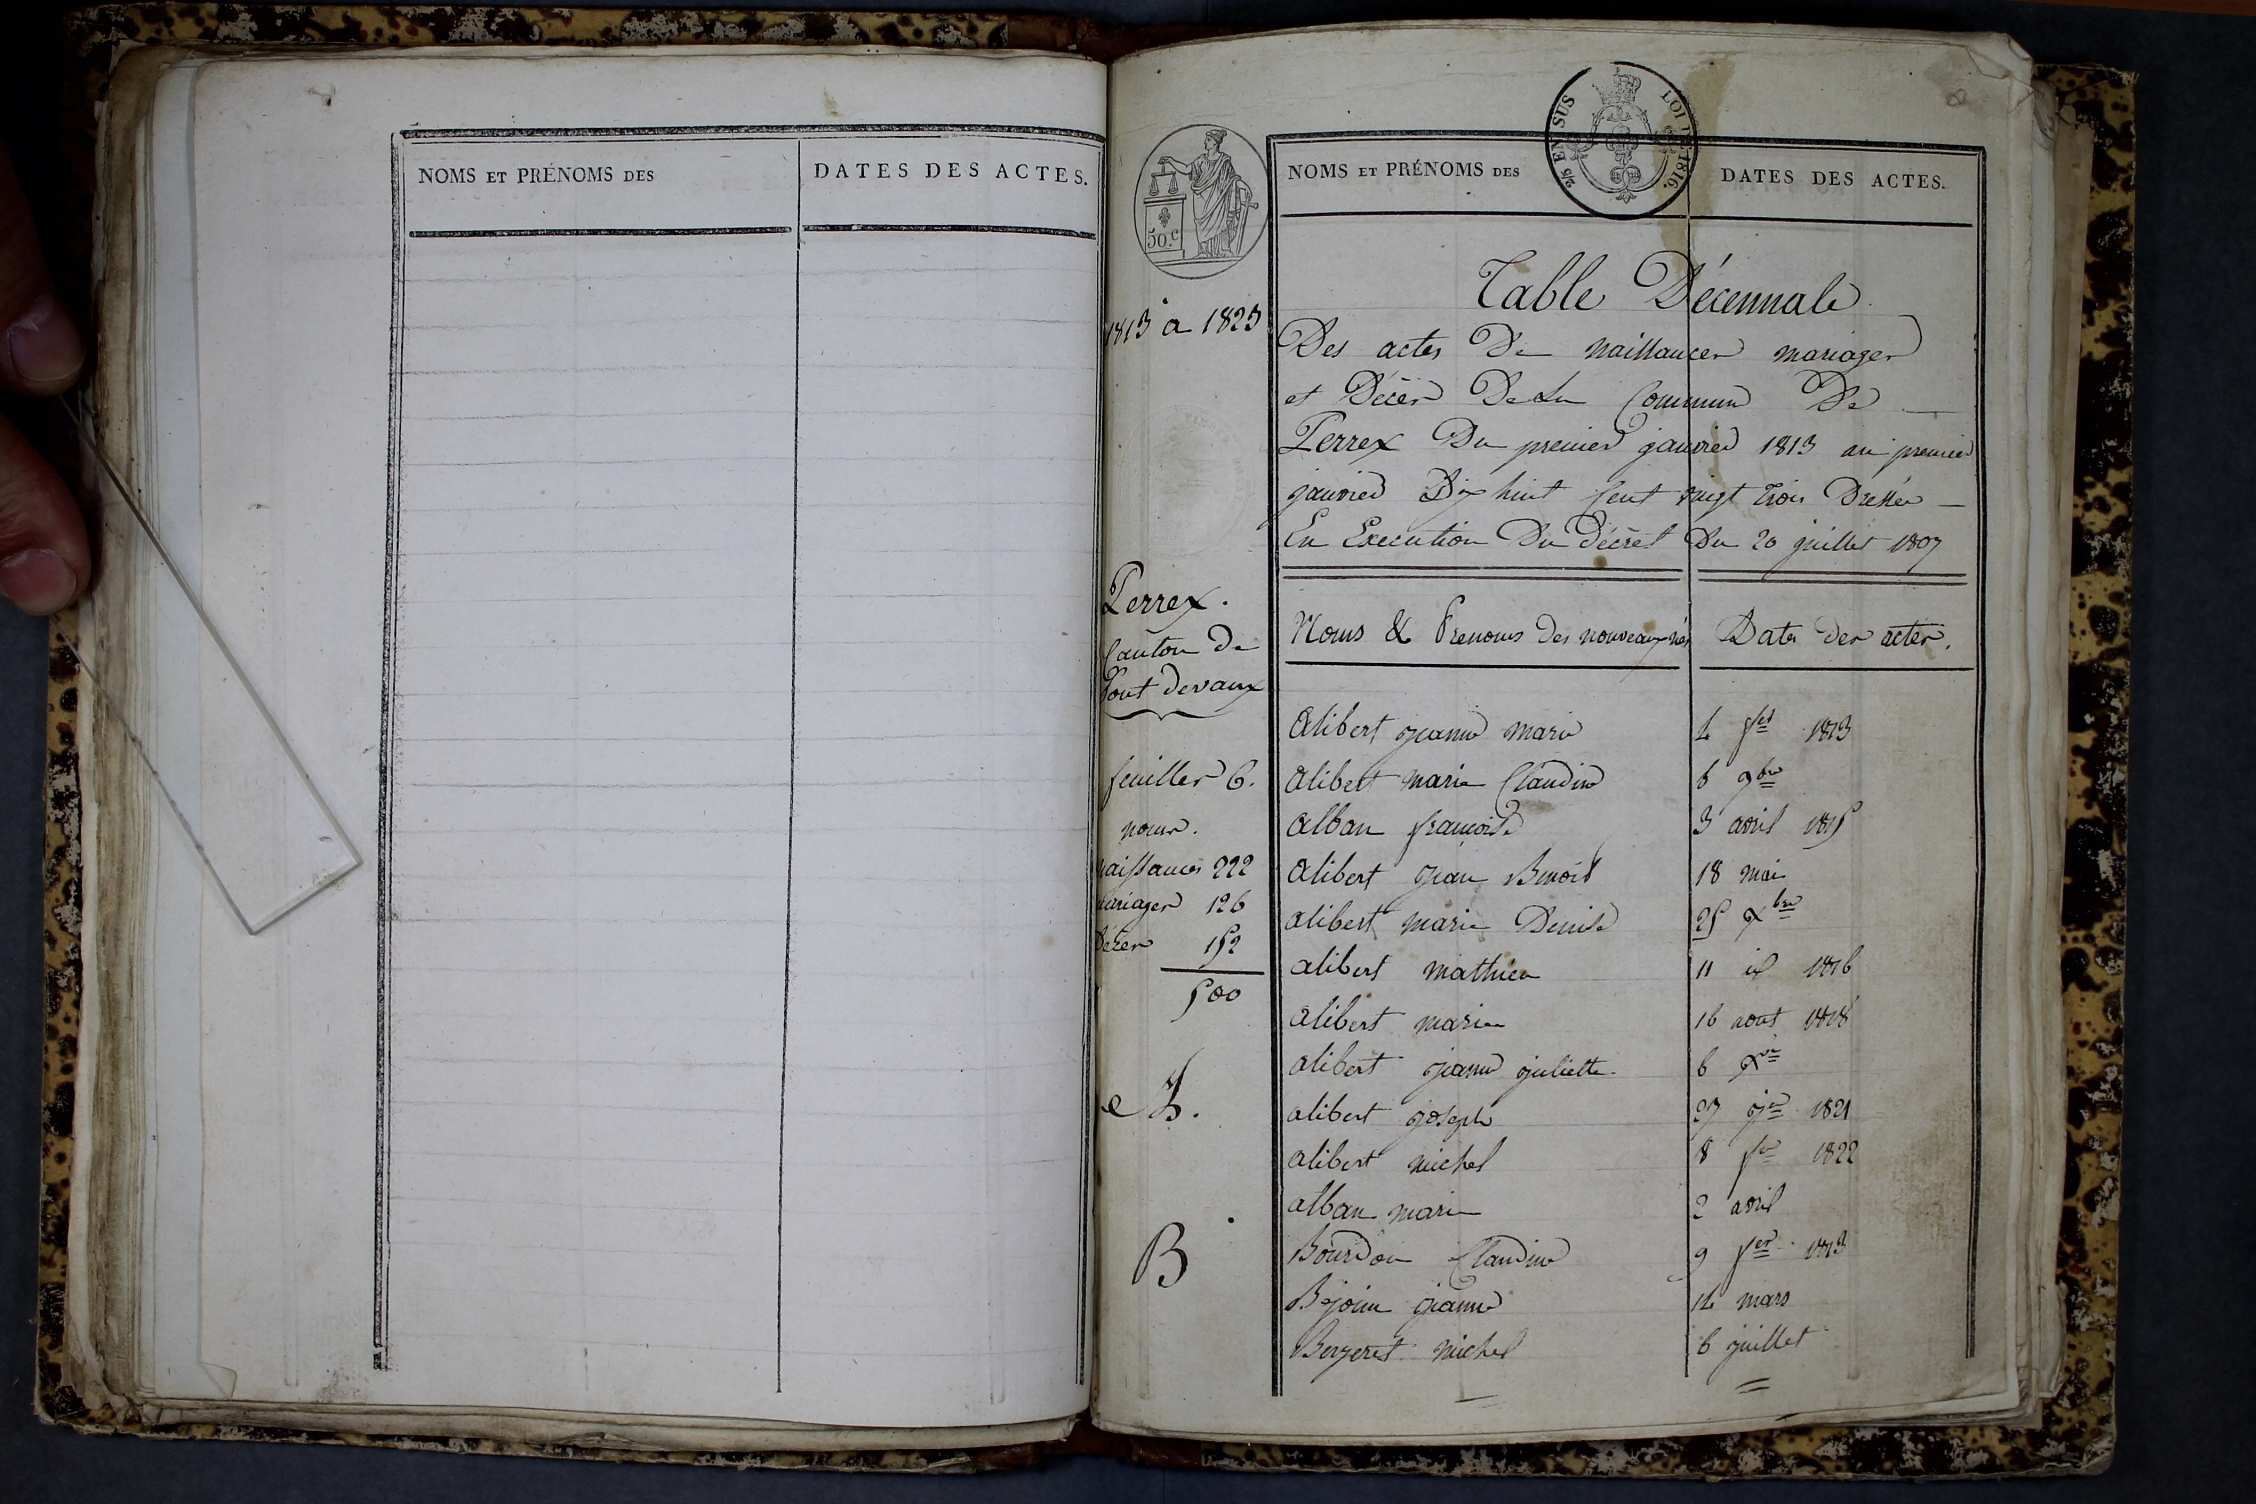 NOMS ET PRÉNOMS DES
DATES DES ACTES.
2/5 EN SUS
LOI DE 1816.
50.c
NOMS ET PRÉNOMS DES
DATES DES ACTES.
1813 à 1823
Table Décennale
Des actes De naissances mariages
et Décès De La Commune De
Perrex Du premier janvier 1813 au premier
janvier Dix huit Cent vingt trois Dressée
En Execution Du Décret Du 20 juillet 1807
Perrex.
Canton De
Pont devaux
feuilles 6.
noms.
naissances 222
mariages 126
Décès 152
500
Noms & Prenoms des nouveaux nés
Dates des actes.
A.
alibert jeanne marie 4 fer 1813
alibert marie Claudine 6 9bre
alban françoise 3 avril 1815
alibert jean Benoit 18 mai
alibert marie Denise 25 Xbre
alibert mathieu 11 id 1816
alibert marie 16 aout 1818
alibert jeanne juliette 6 Xre
alibert joseph 27 jer 1821
alibert michel 8 fer 1822
alban marie 2 avril
B
Bourdon Claudine 9 fer 1813
Bejoin jeanne 14 mars
Bergeret michel 6 juillet